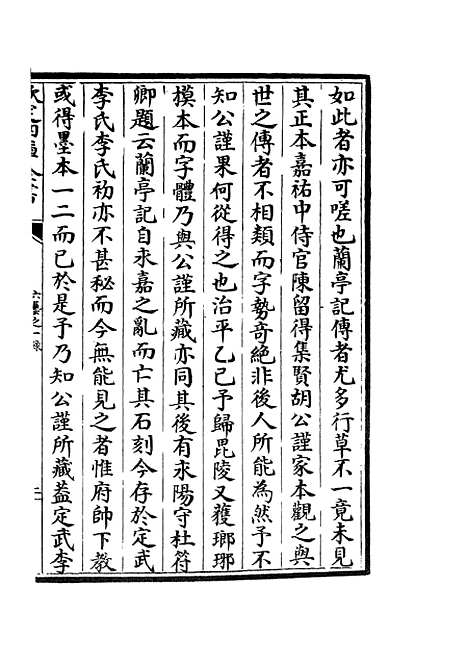 如此者亦可嗟也蘭亭記傳者尤多行草不一竟未見
其正本嘉祐中侍官陳留得集賢胡公謹家本觀之與
世之傳者不相類而字勢奇絕非後人所能為然予不
知公謹果何從得之也治平乙己予歸毘陵又獲瑯琊
模本而字體乃與公謹所藏亦同其後有永陽守杜符
卿題云蘭亭記自永嘉之亂而亡其石刻今存於定武
李氏李氏初亦不甚秘而今無能見之者惟府帥下教
或得墨本一二而已於是予乃知公謹所藏葢定武李
六藝之一錄